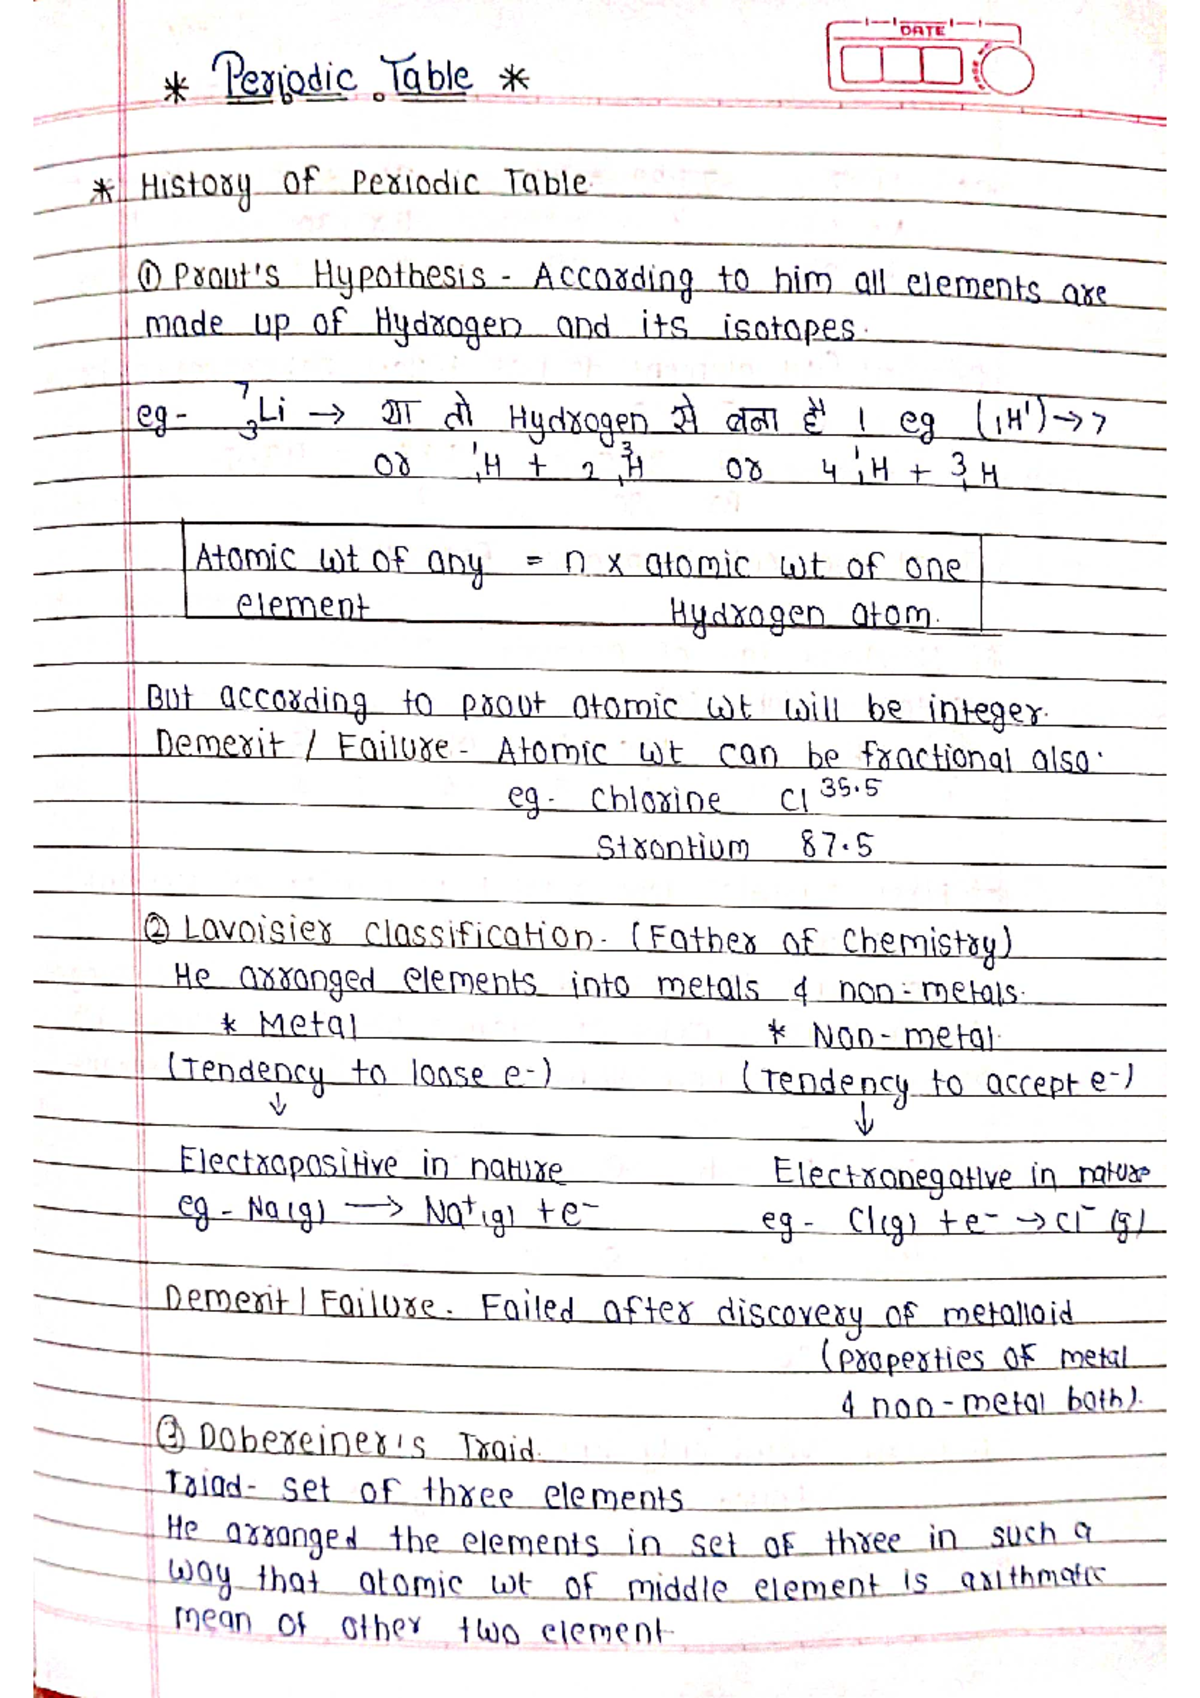 DATE
* Periodic Table *
* History of Periodic Table.
① Prout's Hypothesis - According to him all elements are
made up of Hydrogen and its isotopes.
eg - ⁷₃Li → या तो Hydrogen से बना है । eg (₁H¹) → 7
or ¹₁H + 2 ³₁H or 4 ¹₁H + ³₁H
Atomic wt of any = n x atomic wt of one
element Hydrogen atom.
But according to prout atomic wt will be integer.
Demerit / Failure - Atomic wt can be fractional also.
eg - Chlorine Cl 35.5
Strontium 87.5
② Lavoisier classification. (Father of Chemistry)
He arranged elements into metals & non-metals.
* Metal * Non-metal.
(Tendency to loose e-) (Tendency to accept e-)
↓ ↓
Electropositive in nature Electronegative in nature
eg - Na(g) → Na⁺(g) + e⁻ eg - Cl(g) + e⁻ → Cl⁻(g)
Demerit / Failure - Failed after discovery of metalloid
(properties of metal
& non-metal both).
③ Dobereiner's Traid.
Triad - set of three elements
He arranged the elements in set of three in such a
way that atomic wt of middle element is arithmatic
mean of other two element